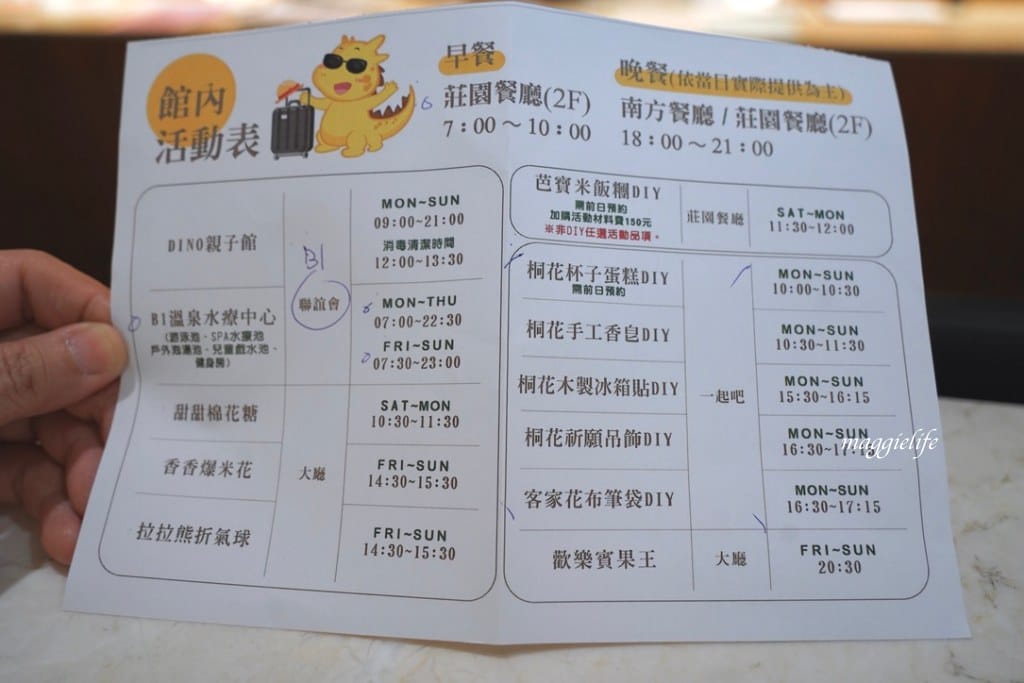 館內
活動表
早餐
莊園餐廳(2F)
7：00～10：00
晚餐(依當日實際提供為主)
南方餐廳 / 莊園餐廳(2F)
18：00～21：00
DINO親子館
B1
聯誼會
MON~SUN
09:00~21:00
消毒清潔時間
12:00~13:30
B1溫泉水療中心
(游泳池、SPA水療池
戶外泡湯池、兒童戲水池、
健身房)
MON~THU
07:00~22:30
FRI~SUN
07:30~23:00
甜甜棉花糖
SAT~MON
10:30~11:30
香香爆米花
大廳
FRI~SUN
14:30~15:30
拉拉熊折氣球
FRI~SUN
14:30~15:30
芭寶米飯糰DIY
開前日預約
加購活動材料費150元
※非DIY任選活動品項。
莊園餐廳
SAT~MON
11:30~12:00
桐花杯子蛋糕DIY
開前日預約
MON~SUN
10:00~10:30
桐花手工香皂DIY
MON~SUN
10:30~11:30
桐花木製冰箱貼DIY
一起吧
MON~SUN
15:30~16:15
桐花祈願吊飾DIY
MON~SUN
16:30~17:15
maggielife
客家花布筆袋DIY
MON~SUN
16:30~17:15
歡樂賓果王
大廳
FRI~SUN
20:30